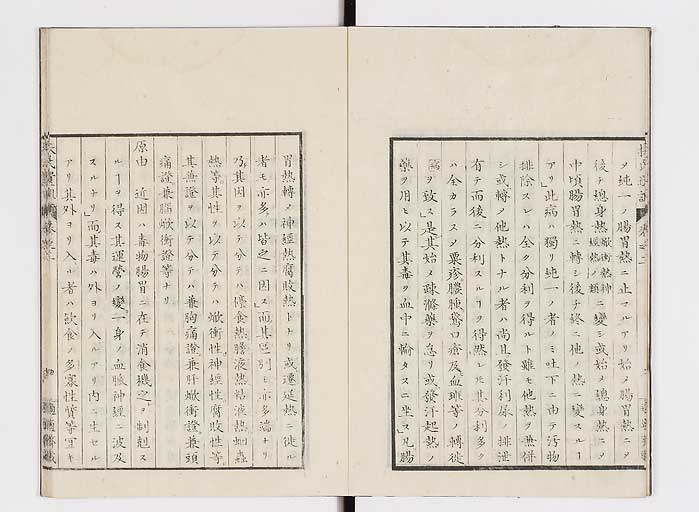 メ純一ノ腸胃熱ニ止マルアリ始メ腸胃熱ニメ
後チ總身熱焮衝熱神經熱ノ類ニ變シ或始メ總身熱ニメ
中頃腸胃熱ニ轉シ後チ終ニ他ノ熱ニ變スルヿ
アリ此病ハ獨リ純一ノ者ノミ吐下ニ由テ汚物
排除スレハ全ク分利ヲ得ルト雖モ他熱ヲ兼併
シ或轉メ他熱トナル者ハ尚且發汗利尿ノ排泄
有テ而後ニ分利スルヿヲ得然レ𪜈其分利多ク
ハ全カラスメ粟疹膿腫鵞口瘡及血痢等ノ轉徙
ヲ致ス是其始メ疎滌藥ヲ怠リ或發汗起熱ノ
藥ヲ用ヒ以テ其毒ヲ血中ニ輸タスニ坐ス凡腸
胃熱轉メ神經熱腐敗熱トナリ或遷延熱ニ徙ル
者モ亦多ハ皆之ニ因ス而其區別モ亦多端ナリ
乃其因ヲ以テ分テハ停食熱膽液熱粘液熱蚘蟲
熱等其性ヲ以テ分テハ焮衝性神經性腐敗性等
其兼證ヲ以テ分テハ兼胸痛證兼肝焮衝證兼頭
痛證兼腦焮衝證等ナリ
原由 近因ハ毒物腸胃ニ在テ消食機之ヲ制剋ス
ルヿヲ得ス其運營ノ變一身ノ血脈神經ニ波及
スルナリ而其毒ハ外ヨリ入ルアリ内ニ生セル
アリ其外ヨリ入ル者ハ飲食ノ多寡性情等宜キ